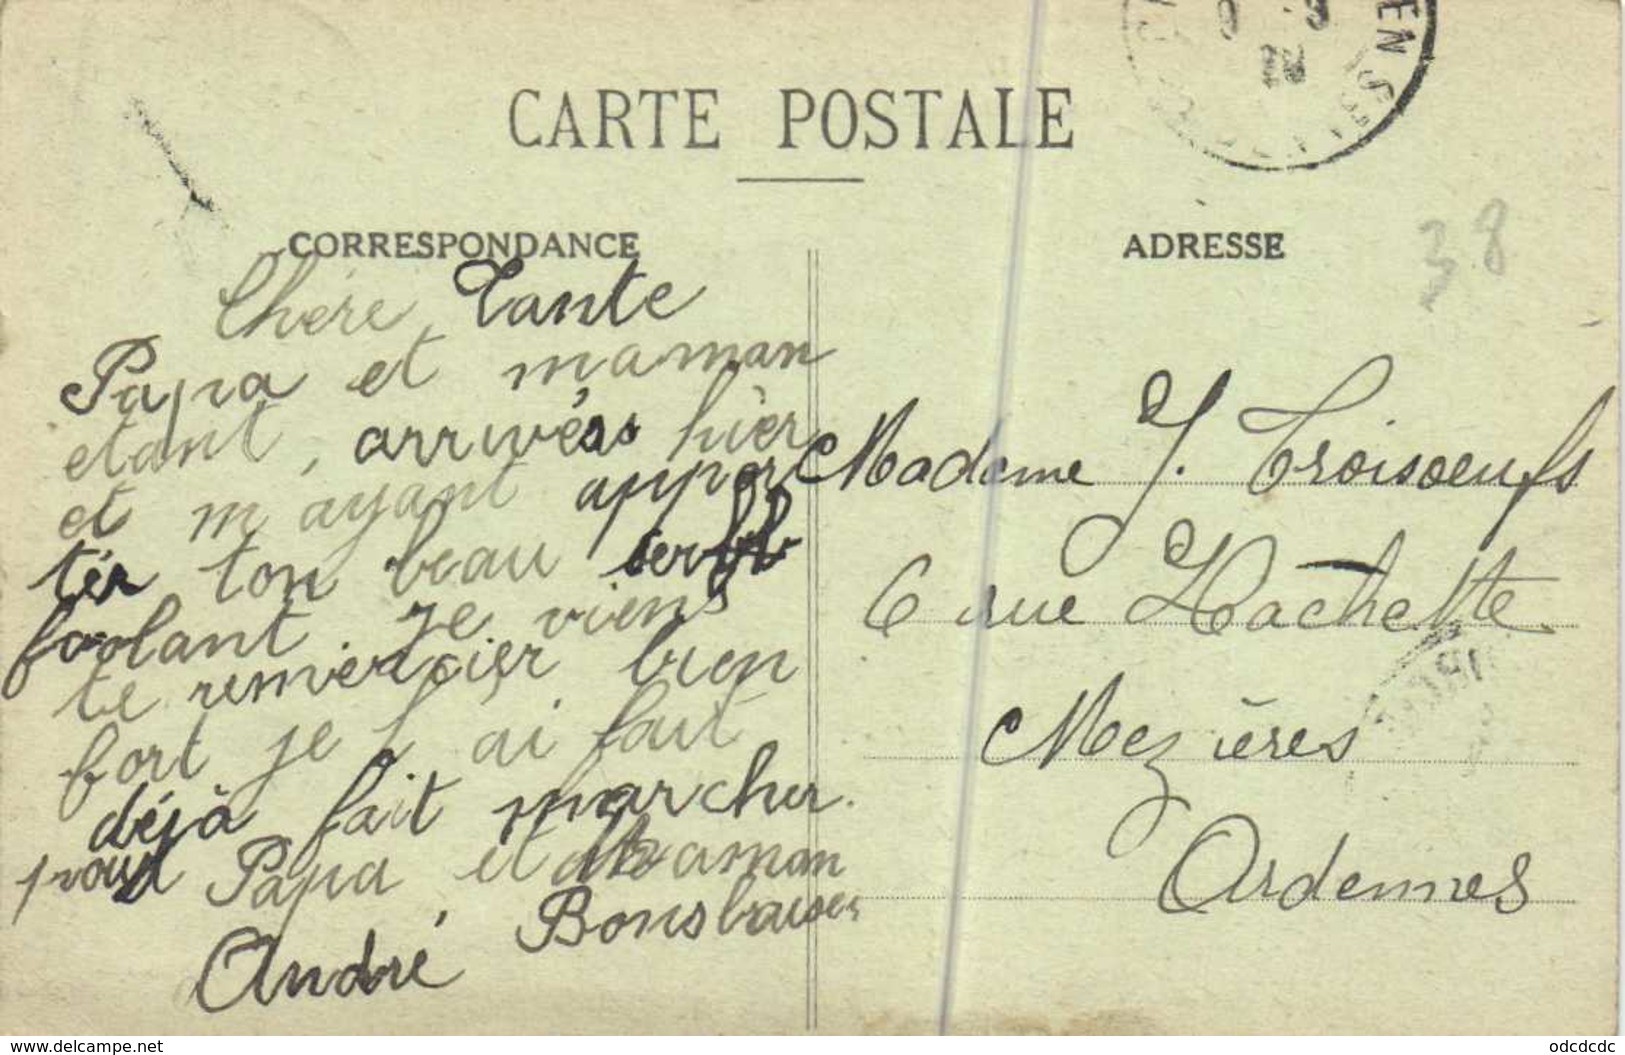 CARTE POSTALE
CORRESPONDANCE
Chère Tante
Papa et maman
etant arrivés hier
et m'ayant appor
ter ton beau cerf
volant je viens
te remercier bien
fort je l ai fait
déjà fait marcher.
pour Papa et maman
Bons baisers
André
ADRESSE
38
Madame J. Troisoeufs
6 rue Hachette
Mezières
Ardennes
www.delcampe.net
odcdcdc